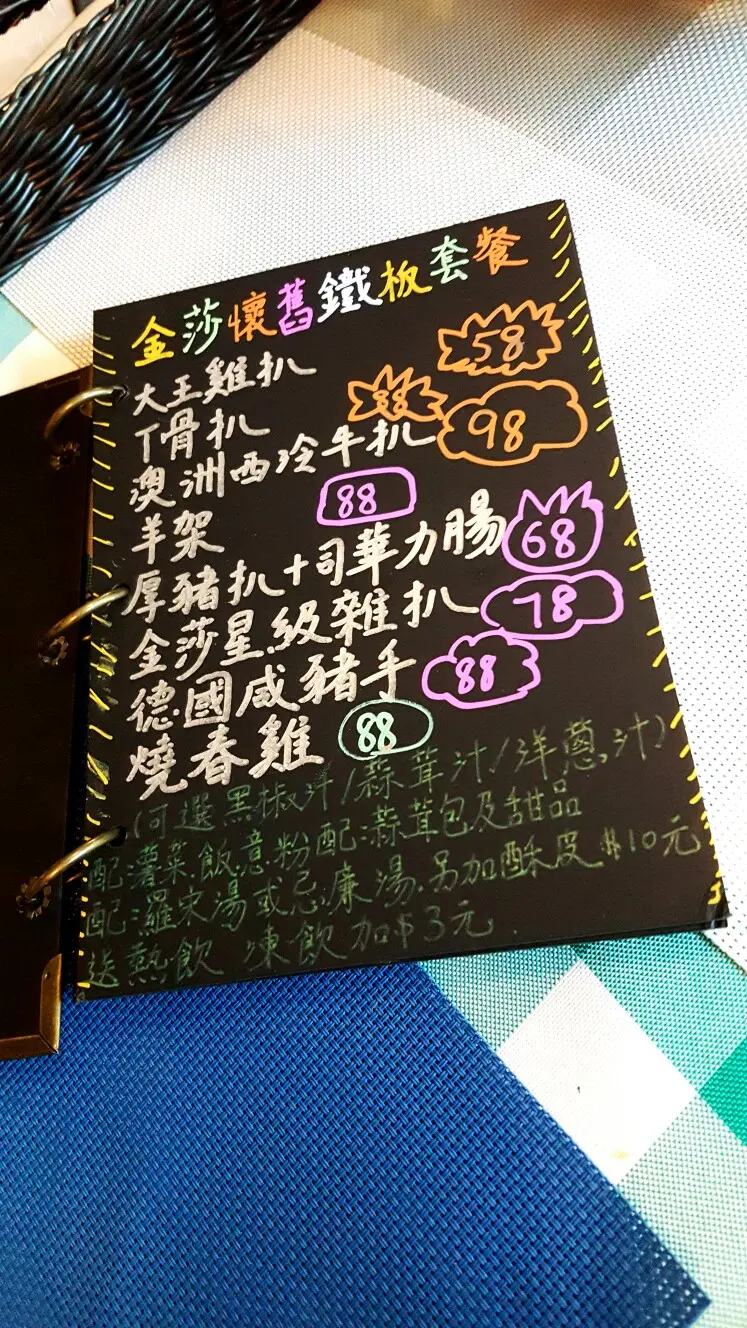 金莎懷舊鐵板套餐
大王雞扒 58
丁骨扒 88
澳洲西冷牛扒 98
羊架 88
厚豬扒+司華力腸 68
金莎星級雜扒 78
德國咸豬手 88
燒春雞 88
(可選黑椒汁/蒜茸汁/洋蔥汁)
配薯菜.飯意粉配:蒜茸包及甜品
配:羅宋湯或忌廉湯.另加酥皮$10元
送熱飲 凍飲加$3元.